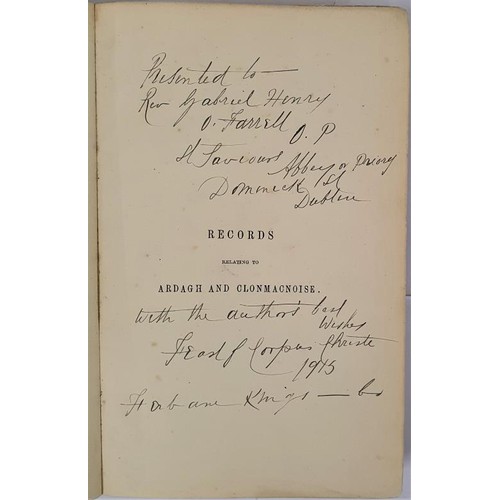 Presented to —
Rev Gabriel Henry
O. Farrell O. P
St Saviours Abbey or Priory
Dominick St
Dublin
RECORDS
RELATING TO
ARDAGH AND CLONMACNOISE.
With the author's best
Wishes
Feast of Corpus Christe
1915
Ferbane Kings — Co